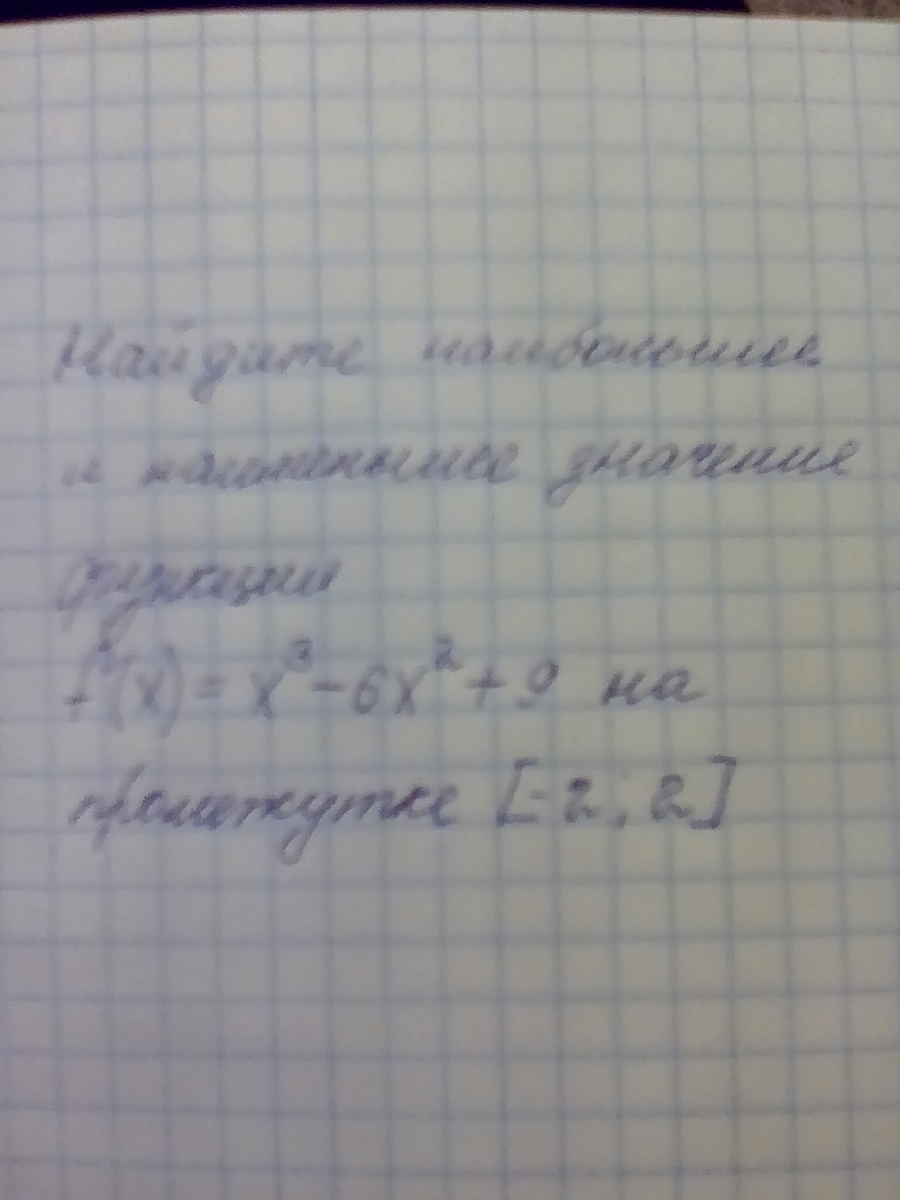 Найдите наибольшее
и наименьшее значение
функции
f(x) = x³ - 6x² + 9 на
промежутке [-2; 2]